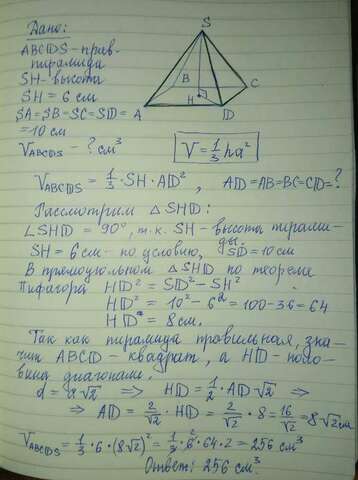 Дано:
ABCDS - прав.
пирамида
SH - высота
SH = 6 см
SA=SB=SC=SD=
=10 см
V_ABCDS - ? см³
S
B
C
H
A
D
V = 1/3 ha²
V_ABCDS = 1/3 · SH · AD², AD=AB=BC=CD=?
Рассмотрим △SHD:
∠SHD = 90°, т.к. SH - высота пирами-
ды.
SH = 6 см - по условию, SD = 10 см
В прямоугольном △SHD по теореме
Пифагора HD² = SD² - SH²
HD² = 10² - 6² = 100 - 36 = 64
HD = 8 см.
Так как пирамида правильная, зна-
чит ABCD - квадрат, а HD - поло-
вина диагонали.
√2 ⇒ HD = 1/2 · AD √2 ⇒
⇒ AD = 2/√2 · HD = 2/√2 · 8 = 16/√2 = 8√2 см
V_ABCDS = 1/3 · 6 · (8√2)² = 1/3 · 6 · 64 · 2 = 256 см³
Ответ: 256 см³